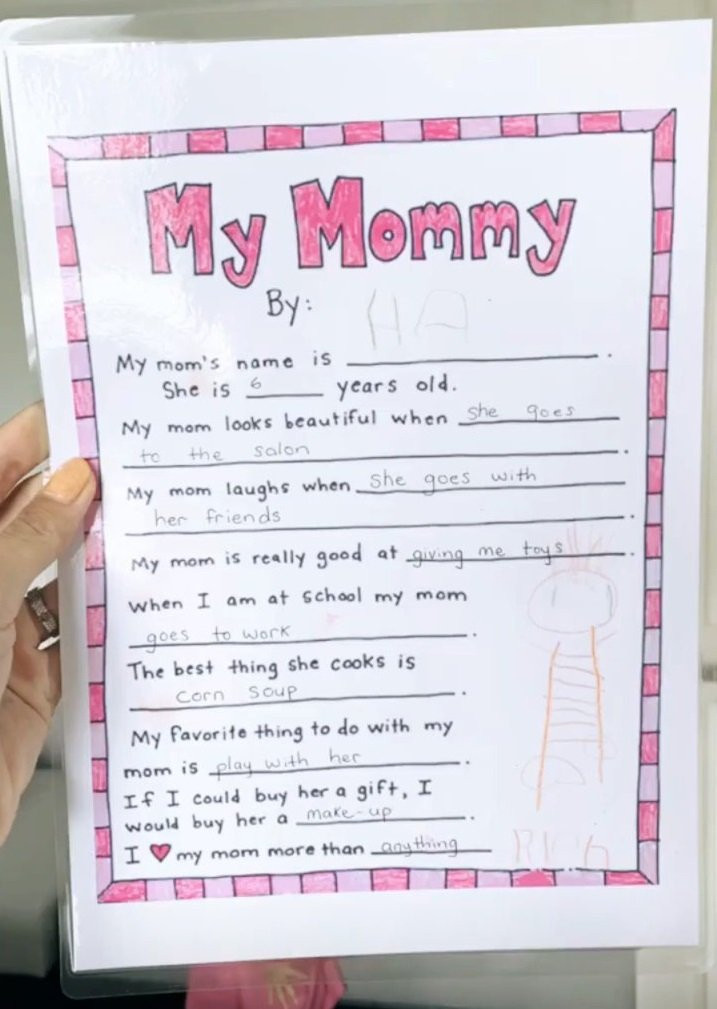 My Mommy
By:
My mom's name is ________.
She is 6 years old.
My mom looks beautiful when she goes
to the salon.
My mom laughs when she goes with
her friends.
My mom is really good at giving me toys.
When I am at school my mom
goes to work.
The best thing she cooks is
corn soup.
My favorite thing to do with my
mom is play with her.
If I could buy her a gift, I
would buy her a make-up.
I ♥ my mom more than anything